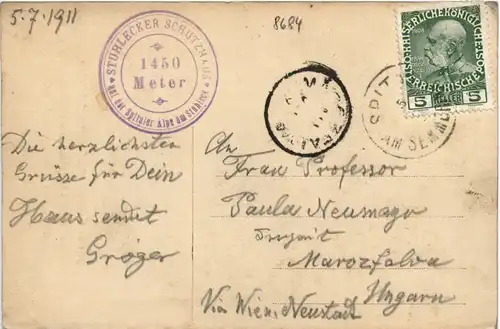 5.7.1911
8684
STUHLECKER SCHUTZHAUS
1450
Meter
auf der Spitaler Alpe am Stuhleck
KAISERLICHE KÖNIGLICHE
ÖSTERREICHISCHE POST
5 HELLER 5
SPIT
AM SEMMER
Die herzlichsten
Grüsse für Dein
Haus sendet
Gröger
An
Frau Professor
Paula Neumayr
Marozfalva
Ungarn
Via Wien, Neustadt